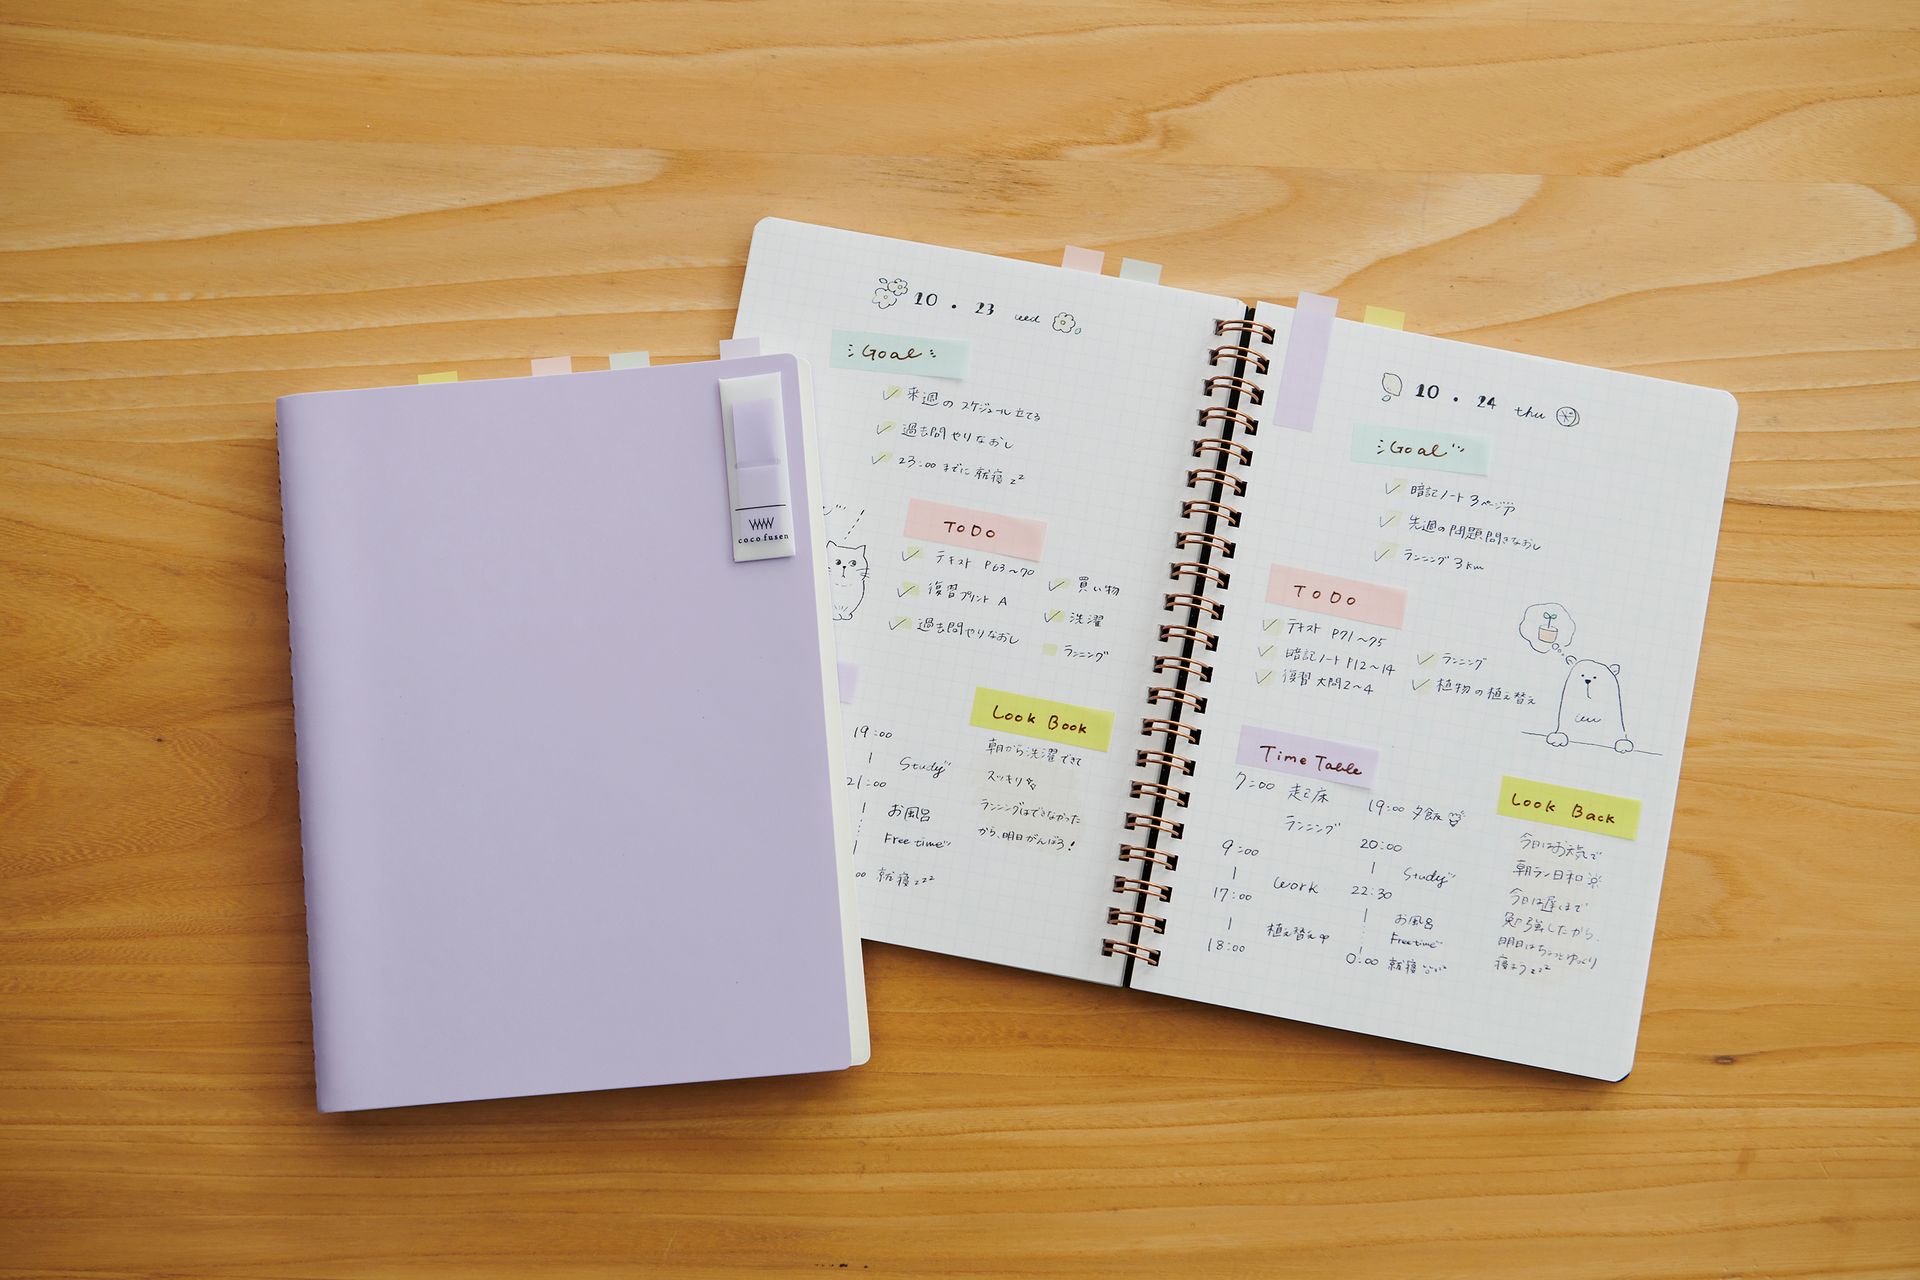 coco fusen
10 . 23 wed
Goal
来週のスケジュール立てる
過去問やりなおし
23:00 までに就寝 zz
ToDo
テキスト P63～70
復習プリント A
過去問やりなおし
買い物
洗濯
ランニング
19:00
Study
21:00
お風呂
Free time
00 就寝 zzz
Look Book
朝から洗濯できて
スッキリ
ランニングはできなかった
から、明日がんばろ！
10 . 24 thu
Goal
暗記ノート 3ページ
先週の問題解きなおし
ランニング 3km
ToDo
テキスト P71～75
暗記ノート P12～14
復習 大問2～4
ランニング
植物の植え替え
Time Table
7:00 起床
ランニング
9:00
work
17:00
植え替え
18:00
19:00 夕食
20:00
Study
22:30
お風呂
Free time
0:00 就寝
Look Back
今日はお天気で
朝ラン日和
今日は遅くまで
勉強したから、
明日はちょっとゆっくり
寝よう zzz